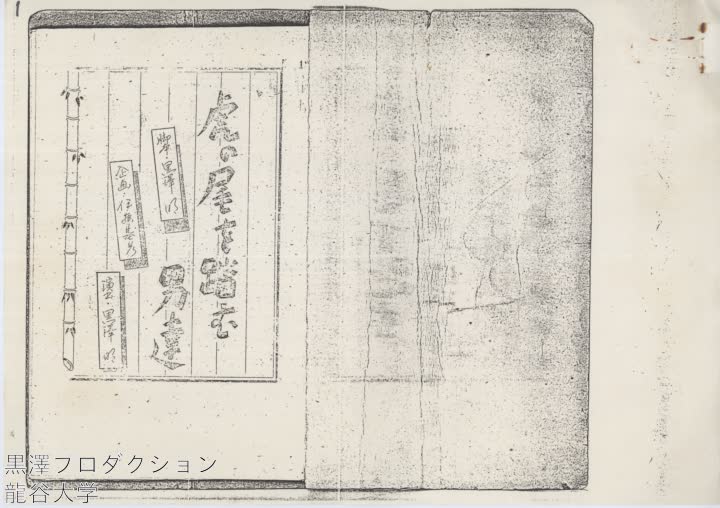 1
虎の尾を踏む
男達
脚本・黒澤 明
企画・伊藤基彦
演出・黒澤 明
黒澤フロダクション
龍谷大学